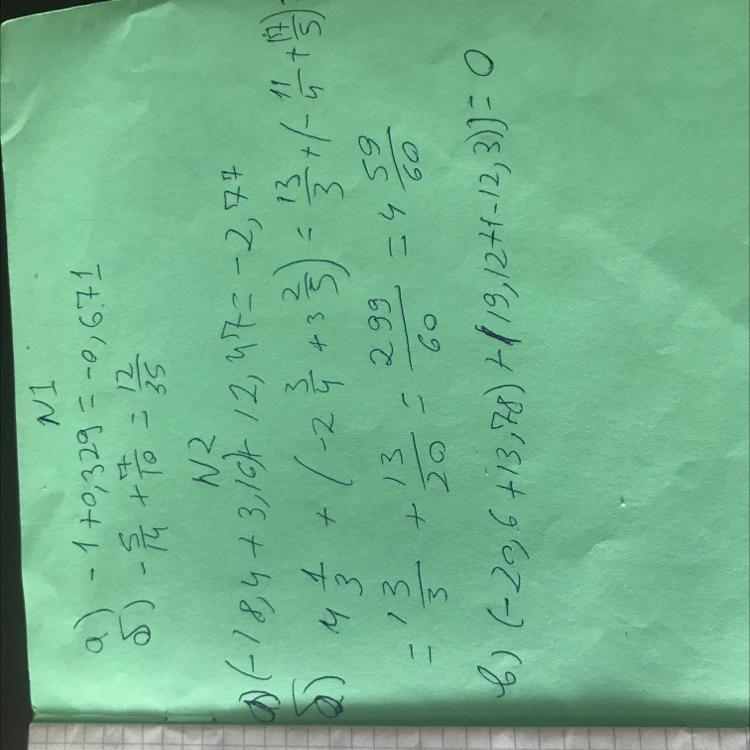 N1
а) -1+0,329=-0,671
б) -5/14 + 7/10 = 12/35
N2
а) (-18,4+3,16)+12,47=-2,77
б) 4 1/3 + (-2 3/4 + 3 2/5) = 13/3 + (-11/4 + 17/5) =
= 13/3 + 13/20 = 299/60 = 4 59/60
в) (-20,6+13,78)+(19,12+(-12,3)]=0